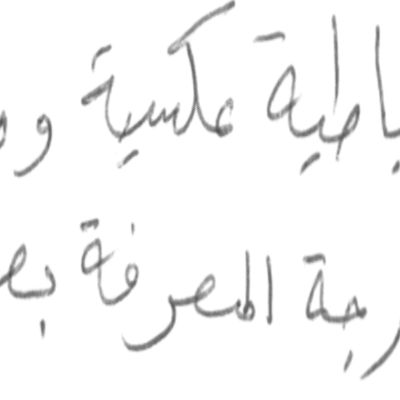 ياطية عكسية و
رجة المعرفة